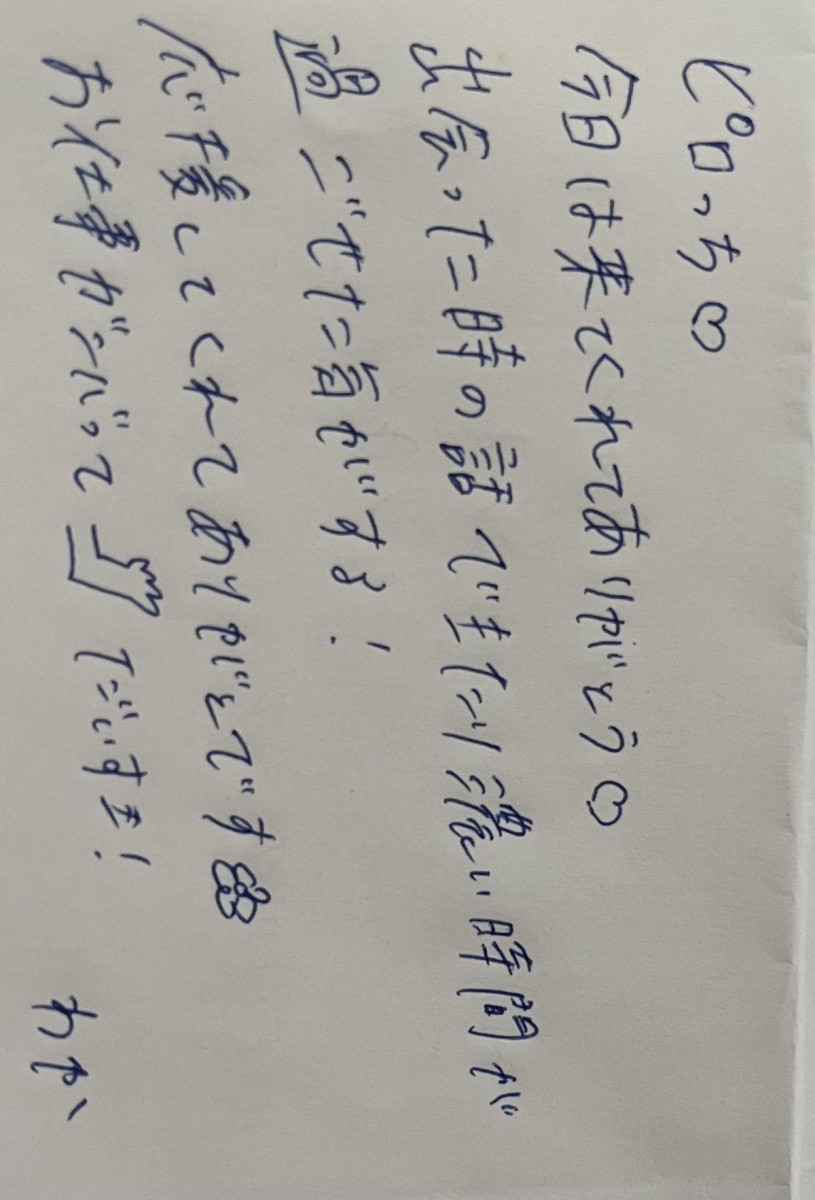 ピロっち♡
今日は来てくれてありがとう♡
出会った時の話でまたり濃い時間が
過ごせた気がする!
応援してくれてありがとです
お仕事がンバって だいすき!
わか